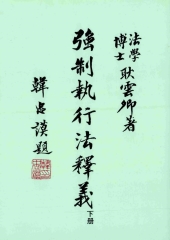 法學博士 耿雲卿著
強制執行法釋義
下册
韓忠謨題